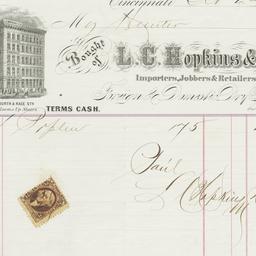 Cincinnati
Bought of
L.C. Hopkins &
Importers, Jobbers & Retailers
Foreign & Domestic Dry
OURTH & RACE STS
Rooms Up Stairs
TERMS CASH.
Poplin 175
Paid
L C Hopkins